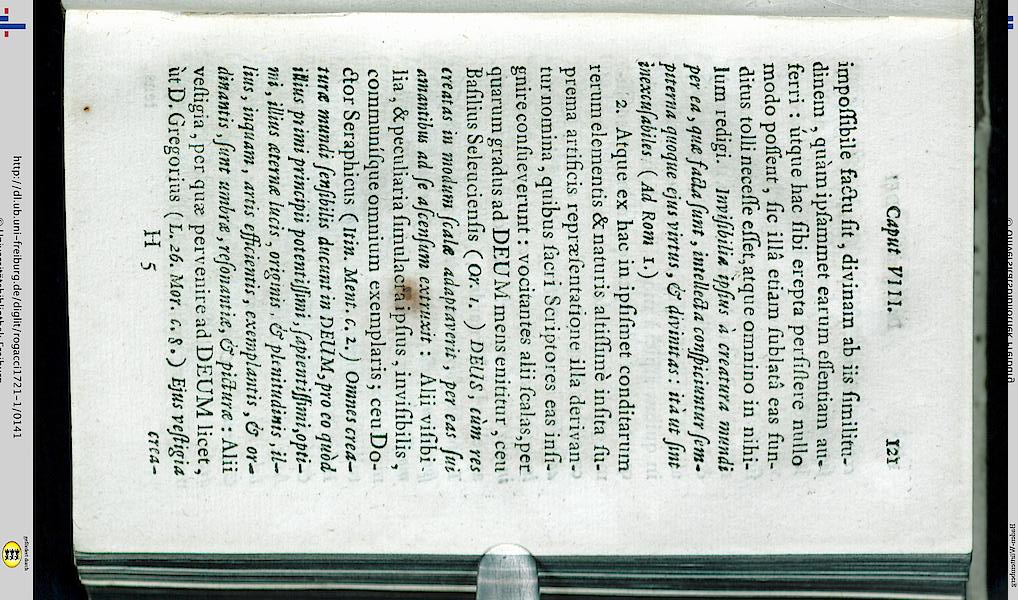 Caput VIII. 121
impoſſibile factu ſit, divinam ab iis ſimilitu-
dinem, quàm ipſammet earum eſſentiam au-
ferri: útque hac ſibi erepta perſiſtere nullo
modo poſſent, ſic illâ etiam ſublatâ eas fun-
ditus tolli neceſſe eſſet, atque omnino in nihi-
lum redigi. Inviſibilia ipſius à creatura mundi
per ea, quæ facta ſunt, intellecta conſpiciuntur ſem-
piterna quoque ejus virtus, & divinitas: ità ut ſint
inexcuſabiles (Ad Rom 1.)
2. Atque ex hac in ipſiſmet conditarum
rerum elementis & naturis altiſſimè inſita ſu-
prema artificis repræſentatione illa derivan-
tur nomina, quibus ſacri Scriptores eas inſi-
gnire conſueverunt: vocitantes alii ſcalas, per
quarum gradus ad DEUM mens enititur, ceu
Baſilius Seleucienſis (Or. 1.) DEUS, cùm res
creatas in modum ſcalæ adaptaverit, per eas ſui
amantibus ad ſe aſcenſum extruxit: Alii viſibi-
lia, & peculiaria ſimulacra ipſius, inviſibilis,
communíſque omnium exemplaris; ceu Do-
ctor Seraphicus (Itin. Ment. c. 2.) Omnes crea-
turæ mundi ſenſibilis ducunt in DEUM, pro eo quòd
illius primi principii potentiſſimi, ſapientiſſimi, opti-
mi, illius æternæ lucis, originis, & plenitudinis, il-
lius, inquam, artis efficientis, exemplantis, & or-
dinantis, ſunt umbræ, reſonantiæ, & picturæ: Alii
veſtigia, per quæ pervenire ad DEUM licet,
ùt D. Gregorius (L. 26. Mor. c. 8.) Ejus veſtigia
H 5 crea-
http://dl.ub.uni-freiburg.de/diglit/rogacci1721-1/0141
© Universitätsbibliothek Freiburg
gefördert durch